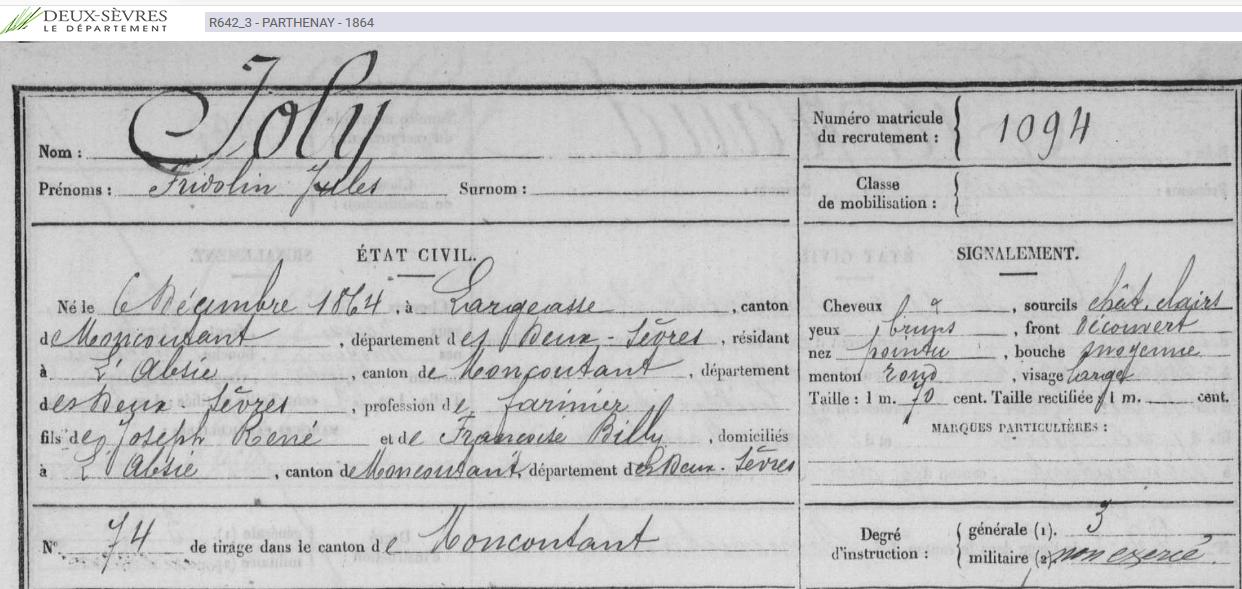 DEUX-SÈVRES
LE DÉPARTEMENT
R642_3 - PARTHENAY - 1864
Nom : Joly
Prénoms : Fridolin Jules Surnom :
Numéro matricule
du recrutement : 1094
Classe
de mobilisation :
ÉTAT CIVIL.
Né le 6 Décembre 1864, à Largeasse, canton
de Moncoutant, département des Deux-Sèvres, résidant
à L'Absie, canton de Moncoutant, département
des Deux-Sèvres, profession de farinier
fils de Joseph René et de Françoise Billy, domiciliés
à L'Absie, canton de Moncoutant, département des Deux-Sèvres
N° 74 de tirage dans le canton de Moncoutant
SIGNALEMENT.
Cheveux &, sourcils chât. clairs
yeux bruns, front découvert
nez pointu, bouche moyenne
menton rond, visage large
Taille : 1 m. 70 cent. Taille rectifiée 1 m. cent.
MARQUES PARTICULIÈRES :
Degré
d'instruction :
générale (1). 3
militaire (2) non exercé.